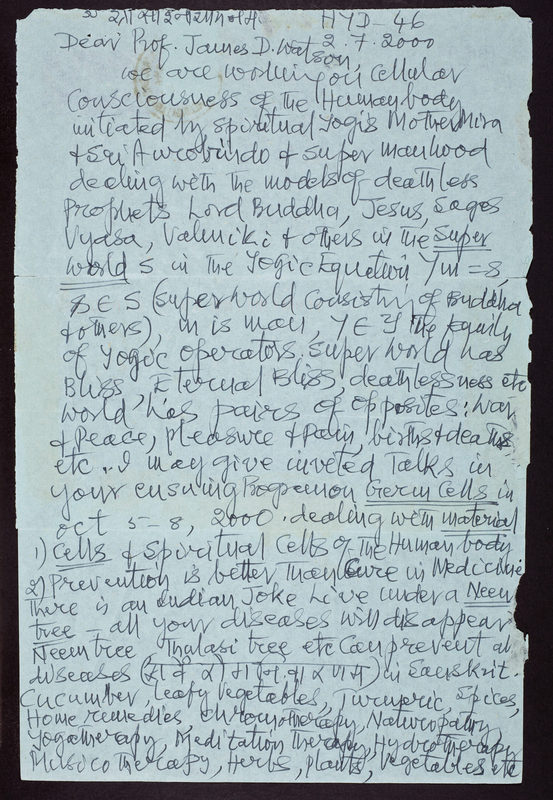 HYD-46
Dear Prof. James D. Watson, 2.7.2000
we are working on cellular
Consciousness of the Human body
initiated by spiritual Yogis Mother Mira
& Sri Aurobindo & super manhood
dealing with the models of deathless
Prophets Lord Buddha, Jesus, Sages
Vyasa, Valmiki & others in the Super
World S in the Yogic Equation Ym = s,
s ∈ S (superworld consisting of Buddha
& others), m is man, Y ∈ Y the family
of Yogic operators. Super world has
Bliss, Eternal Bliss, deathlessness etc
world has pairs of opposites: war
& Peace, pleasure & Pain, births & deaths
etc.. I may give invited Talks in
your ensuing Program on Germ Cells in
Oct 5-8, 2000. dealing with material
1) Cells & Spiritual Cells of the Human body
2) Prevention is better than Cure in Medicine
There is an Indian Joke Live under a Neem
tree - all your diseases will disappear
Neem tree Thalasi tree etc can prevent all
diseases in Sanskrit.
Cucumber, Leafy Vegetables, Turmeric, Spices,
Home remedies, chromotherapy, Naturopathy,
Yogatherapy, Meditation Therapy, Hydrotherapy,
Musicotherapy, Herbs, Plants, Vegetables etc